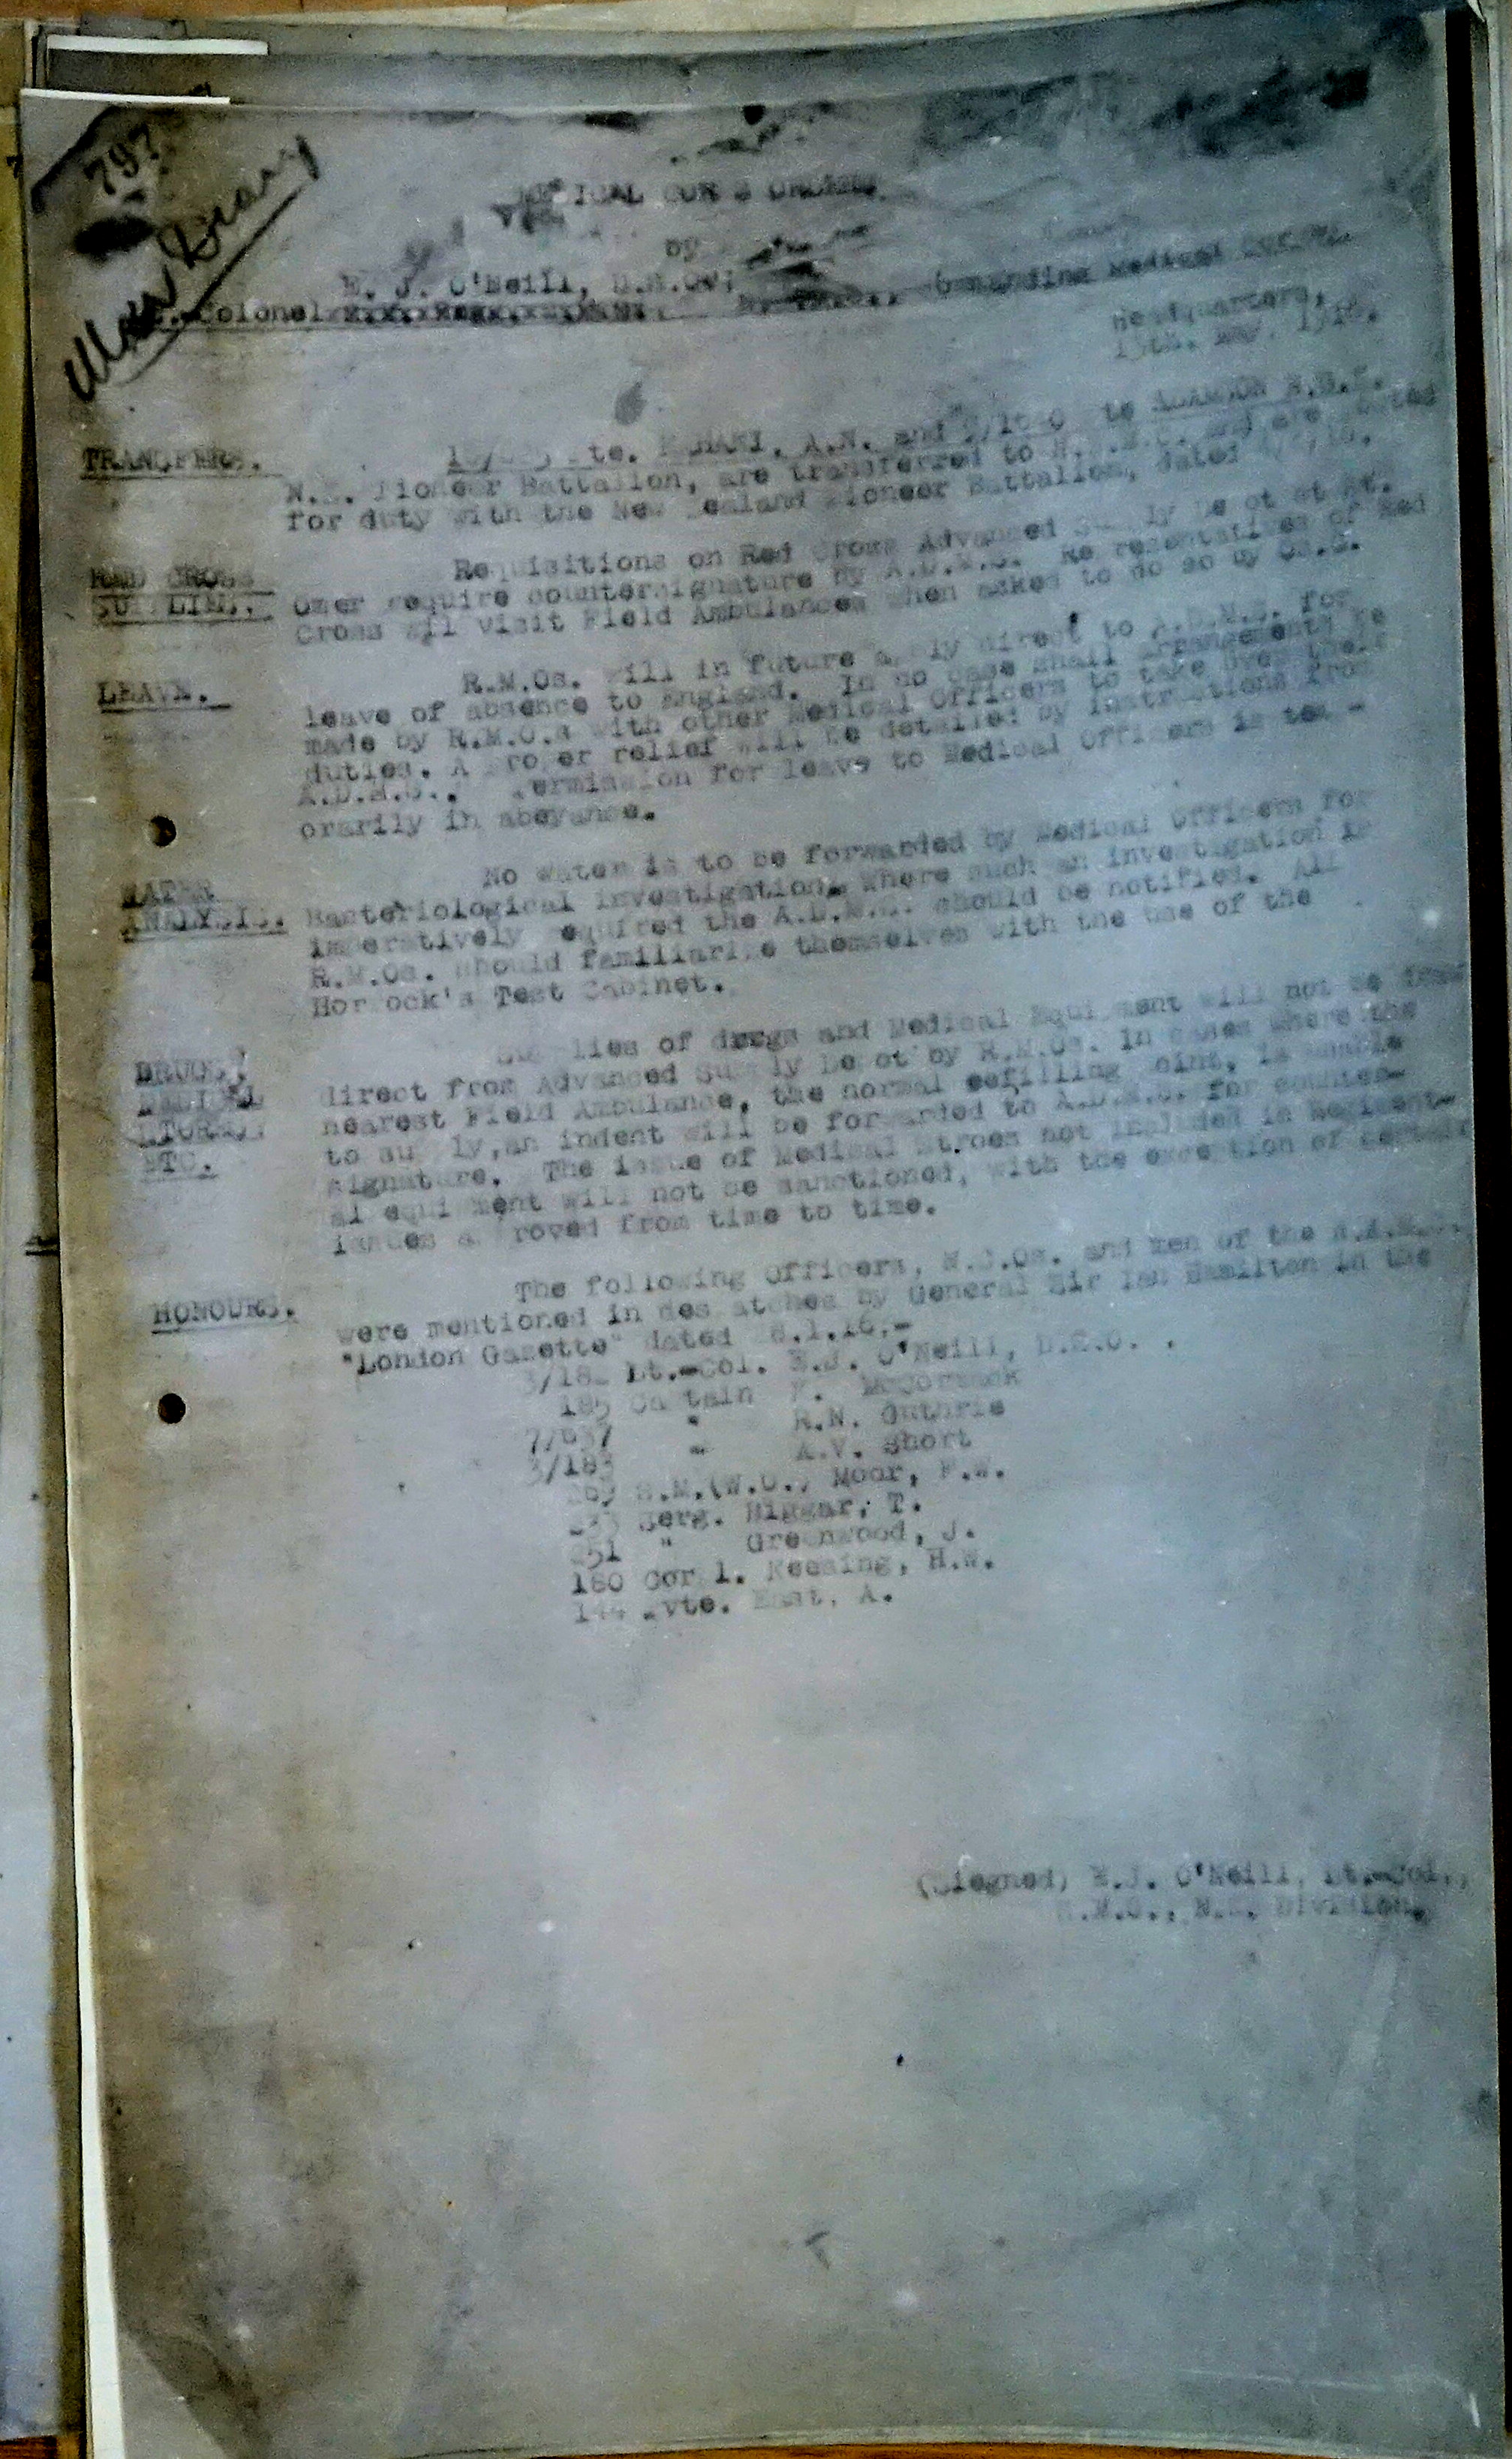 797
War Diary
MEDICAL CORPS ORDERS.
by
E. J. O'Neill, D.S.O.,
Colonel Commanding Medical
Headquarters,
15th. May. 1916.
TRANSFERS. A.N. and to ADAMSON
N.Z. Pioneer Battalion, are transferred to and are
for duty with the New Zealand Pioneer Battalion, dated
RED CROSS Requisitions on Red Cross Advanced Supply Depot at St.
SUPPLIES. Omer require countersignature by A.D.M.S. Representatives of Red
Cross will visit Field Ambulances when asked to do so by Os.C.
LEAVE. R.M.Os. will in future apply direct to A.D.M.S. for
leave of absence to England. In no case shall arrangements be
made by R.M.O.s with other Medical Officers to take over their
duties. A proper relief will be detailed by instructions from
A.D.M.S.. Permission for leave to Medical Officers is tem-
orarily in abeyance.
WATER No water is to be forwarded by Medical Officers for
ANALYSIS. Bacteriological investigation. Where such an investigation is
imperatively required the A.D.M.S. should be notified. All
R.M.Os. should familiarize themselves with the use of the
Horrock's Test Cabinet.
DRUGS, Supplies of drugs and Medical Equipment will not be
MEDICAL direct from Advanced Supply Depot by R.M.Os. In cases where the
STORES, nearest Field Ambulance, the normal refilling point, is unable
ETC. to supply, an indent will be forwarded to A.D.M.S. for counter-
signature. The issue of Medical Stroes not included in Regiment-
al equipment will not be sanctioned, with the exception of certain
issues approved from time to time.
HONOURS. The following Officers, N.C.Os. and men of the N.Z.M.C.
were mentioned in despatches by General Sir Ian Hamilton in the
"London Gazette" dated 1.16.-
Lt.-Col. E.J. O'Neill, D.S.O.
Captain McCormack
" R.N. Guthrie
3/183 " A.V. Short
S.M.(W.O.) Moor, F.W.
Serg. Biggar, T.
" Greenwood, J.
180 Corpl. Keesing, H.W.
Pvte. East, A.
(Siegned) E.J. O'Neill, Lt.-Col.,
N.Z. Division.